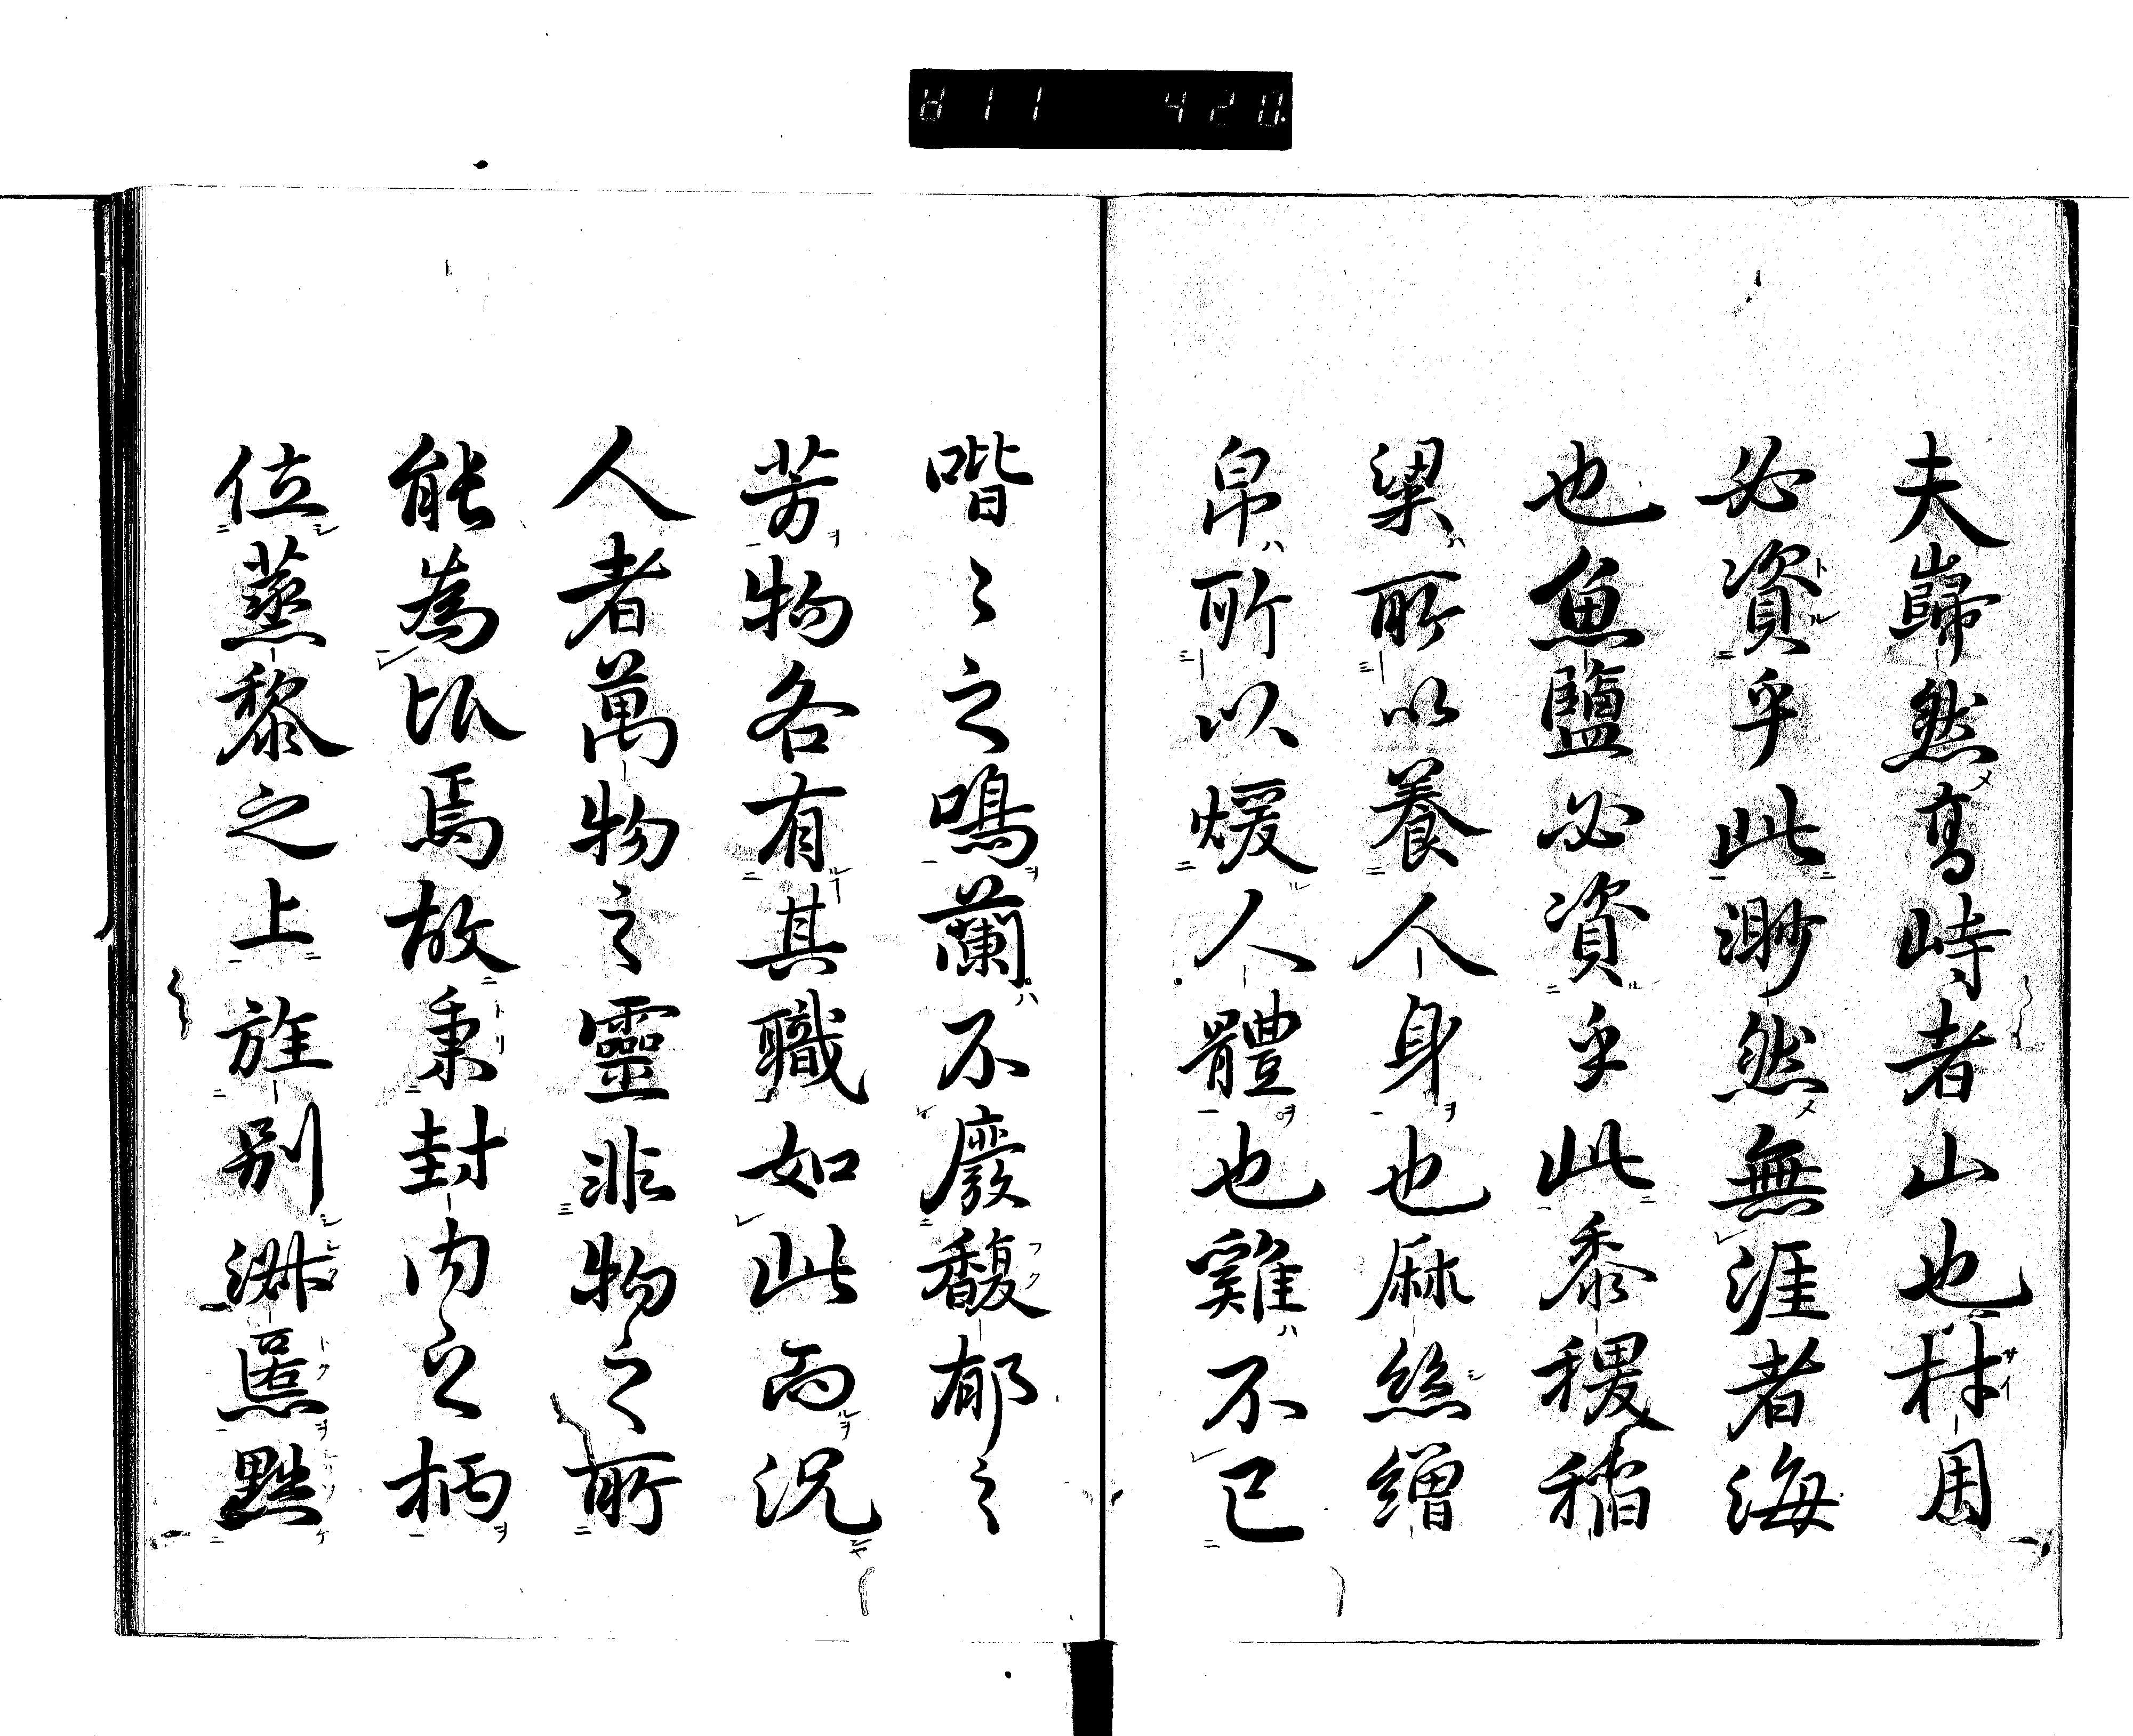 811 420
夫巋然高峙者山也材用
必資乎此渺然無涯者海
也魚鹽必資乎此黍稷稻
粱所以養人身也麻絲繒
帛所以煖人體也雞不已
喈〻之鳴蘭不廢馥郁之
芳物各有其職如此而況
人者萬物之靈非物之所
能為比焉故秉封內之柄
位蒸黎之上旌別淑慝黜